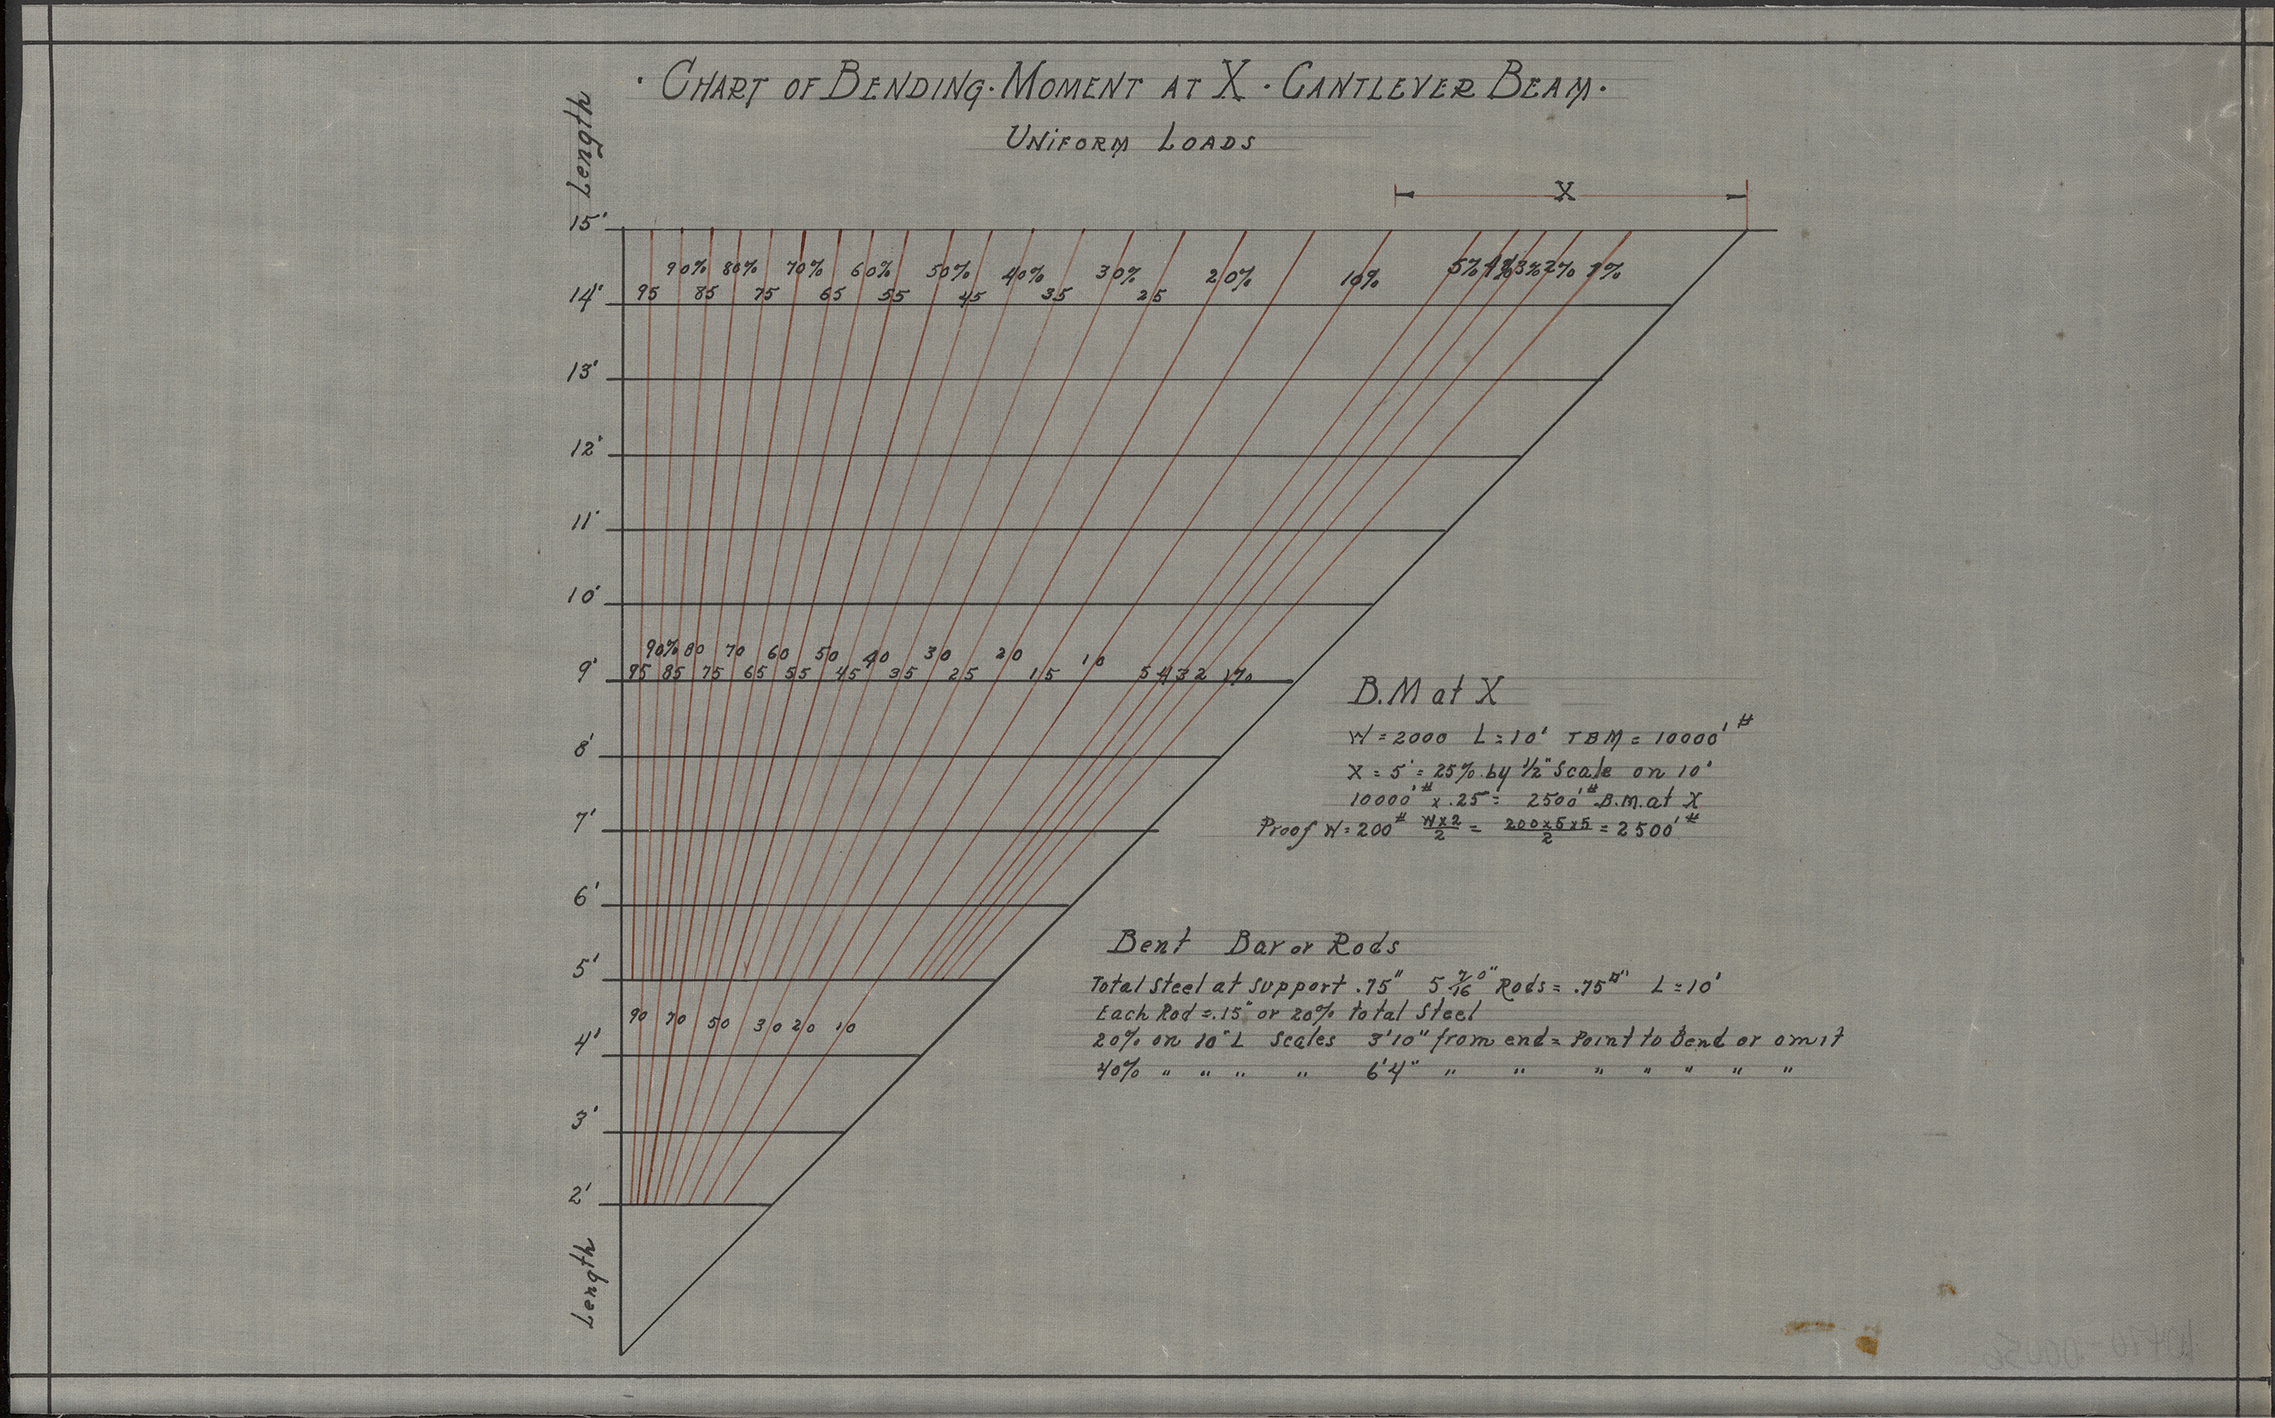 · CHART OF BENDING · MOMENT AT X · CANTLEVER BEAM ·
UNIFORM LOADS
Length
X
15'
90% 80% 70% 60% 50% 40% 30% 20% 10% 5% 4% 3% 2% 1%
95 85 75 65 55 45 35 25
14'
13'
12'
11'
10'
90% 80 70 60 50 40 30 20 10
95 85 75 65 55 45 35 25 15 5 4 3 2 1%
9'
B.M at X
W = 2000 L = 10' TBM = 10000'#
8'
X = 5' = 25% by 1/2" Scale on 10'
10000'# x .25 = 2500'# B.M. at X
7'
Proof W = 200# Wx2/2 = 200x5x5/2 = 2500'#
6'
Bent Bar or Rods
5'
Total Steel at support .75" 5 7/16"0 Rods = .75▫" L = 10'
Each Rod = .15" or 20% total Steel
90 70 50 30 20 10
4'
20% on 10" L Scales 3'10" from end = Point to Bend or omit
40% " " " " 6'4" " " " " " " "
3'
2'
Length